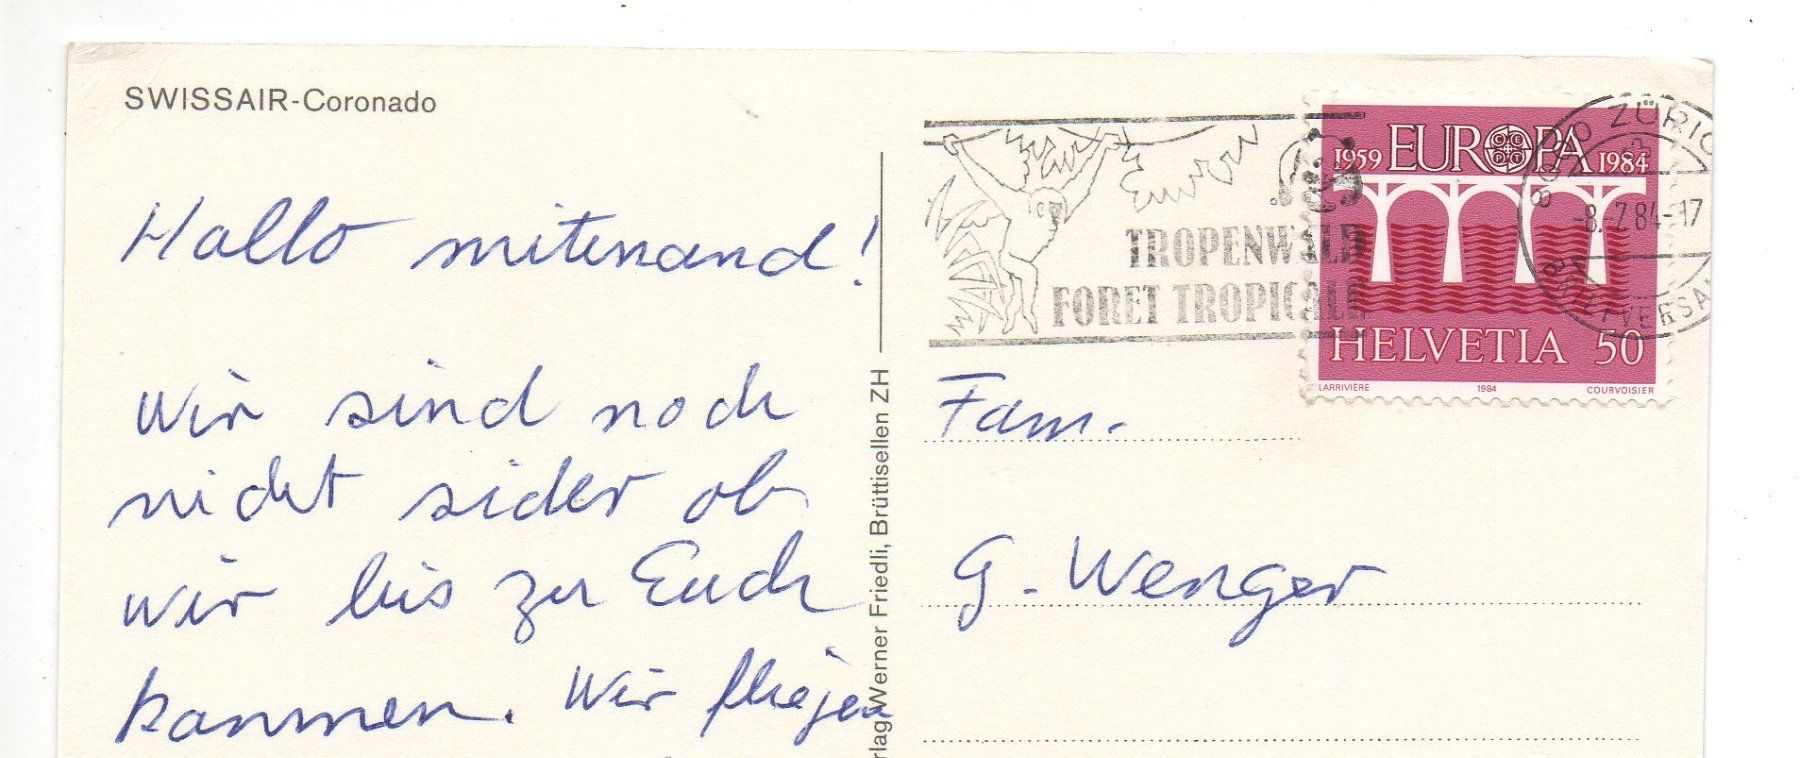 SWISSAIR-Coronado
Hallo mitenand!
Wir sind noch
nicht sicher ob
wir bis zu Euch
kommen. Wir fliegen
rlag Werner Friedli, Brüttisellen ZH
TROPENWALD
FORET TROPICALE
1959 EUROPA 1984
HELVETIA 50
LARRIVIÈRE 1984 COURVOISIER
ZÜRIC
-8.-7.84-17
BRIEFVERSA
Fam.
G. Wenger